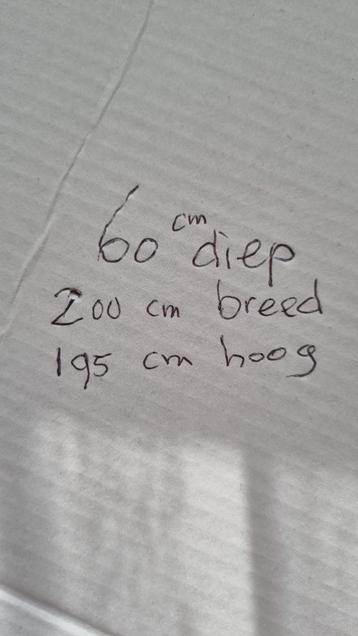 60 cm diep
200 cm breed
195 cm hoog